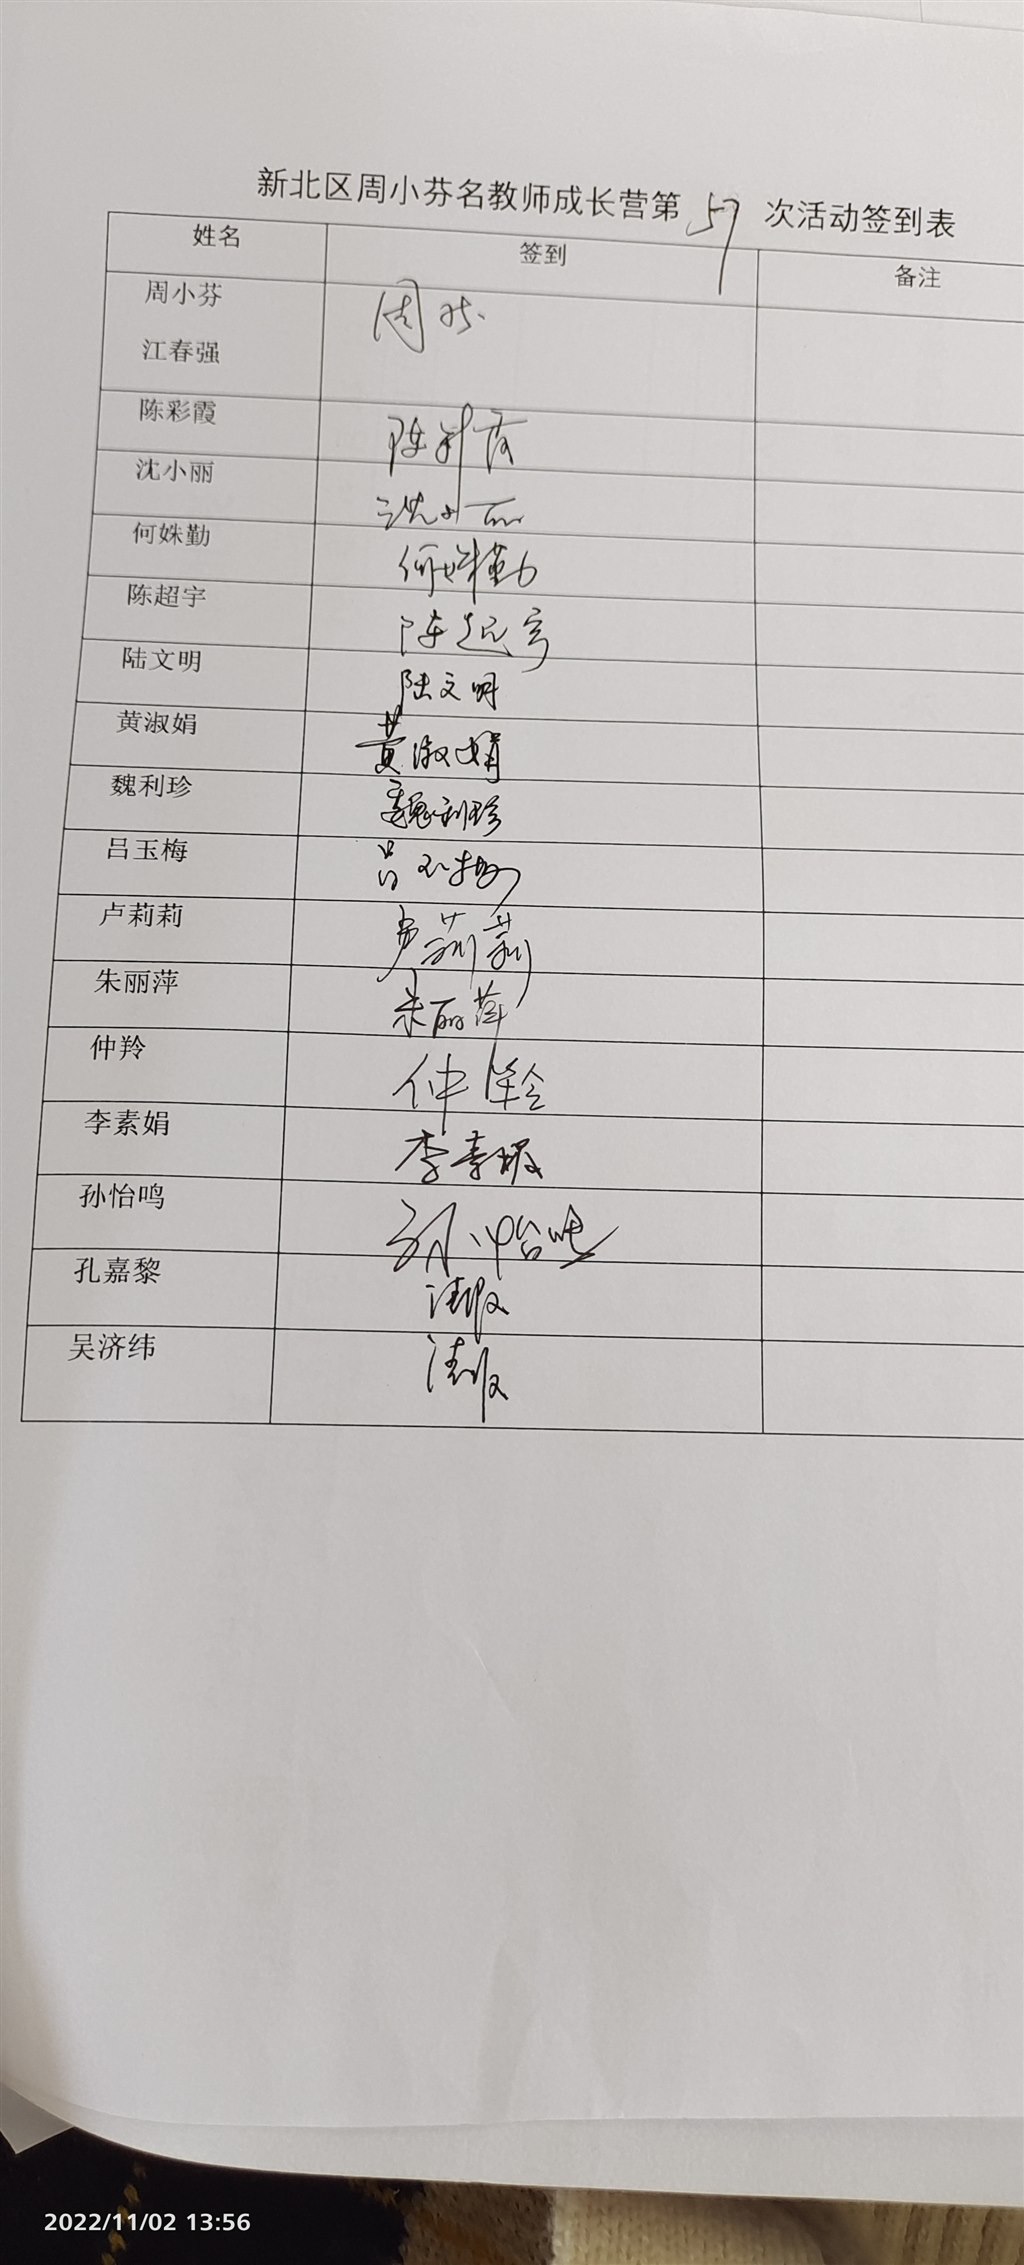 新北区周小芬名教师成长营第 57 次活动签到表
姓名 签到 备注
周小芬 周
江春强
陈彩霞 陈彩霞
沈小丽 沈小丽
何姝勤 何姝勤
陈超宇 陈超宇
陆文明 陆文明
黄淑娟 黄淑娟
魏利珍 魏利珍
吕玉梅 吕玉梅
卢莉莉 卢莉莉
朱丽萍 朱丽萍
仲羚 仲羚
李素娟 李素娟
孙怡鸣 孙怡鸣
孔嘉黎 请假
吴济纬 请假
2022/11/02 13:56